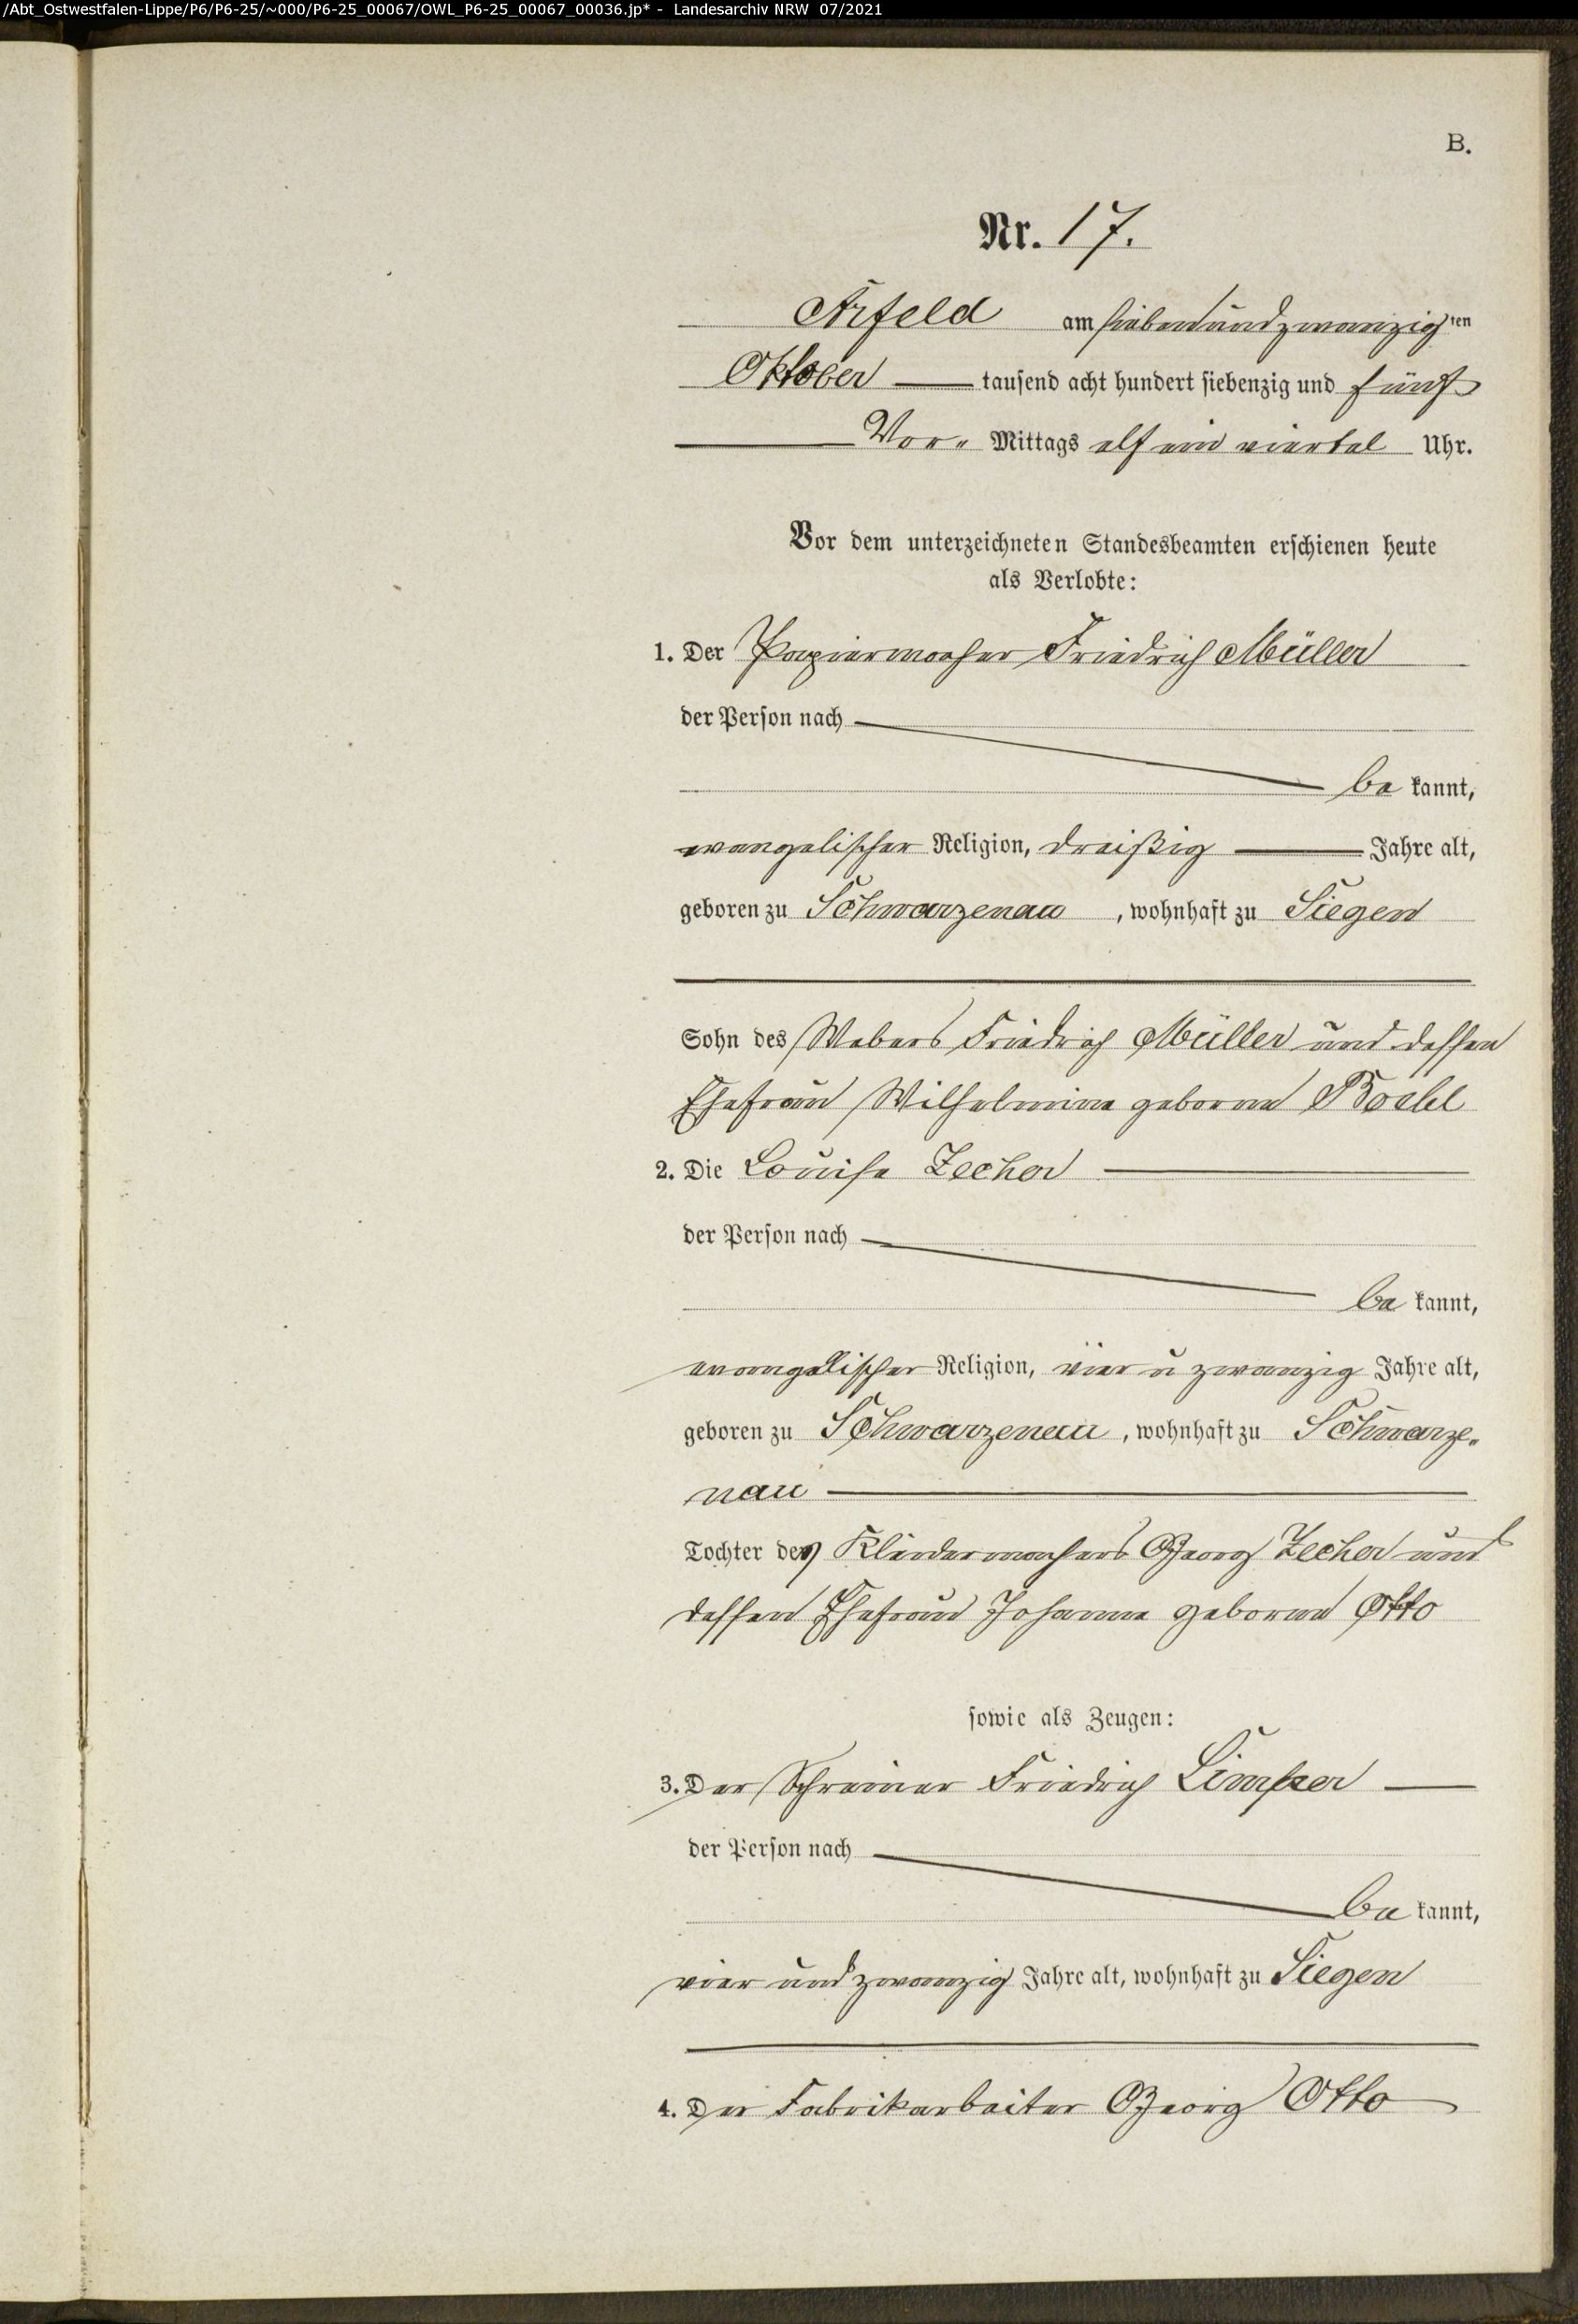 /Abt_Ostwestfalen-Lippe/P6/P6-25/~000/P6-25_00067/OWL_P6-25_00067_00036.jp* - Landesarchiv NRW 07/2021
B.
Nr. 17.
Arfeld am siebenundzwanzigten
Oktober tausend acht hundert siebenzig und fünf
Vor- Mittags elf ein viertel Uhr.
Vor dem unterzeichneten Standesbeamten erschienen heute
als Verlobte:
1. Der Papiermacher Friedrich Müller
der Person nach
be kannt,
evangelischer Religion, dreißig Jahre alt,
geboren zu Schwarzenau, wohnhaft zu Siegen
Sohn des Webers Friedrich Müller und dessen
Ehefrau Wilhelmine geborne
2. Die Louise Zecher
der Person nach
be kannt,
evangelischer Religion, vier u zwanzig Jahre alt,
geboren zu Schwarzenau, wohnhaft zu Schwarze-
nau
Tochter des Kleidermachers Georg Zecher und
dessen Ehefrau Johanne geborne Otto
sowie als Zeugen:
3. Der Schreiner Friedrich
der Person nach
be kannt,
vier und zwanzig Jahre alt, wohnhaft zu Siegen
4. Der Fabrikarbeiter Georg Otto